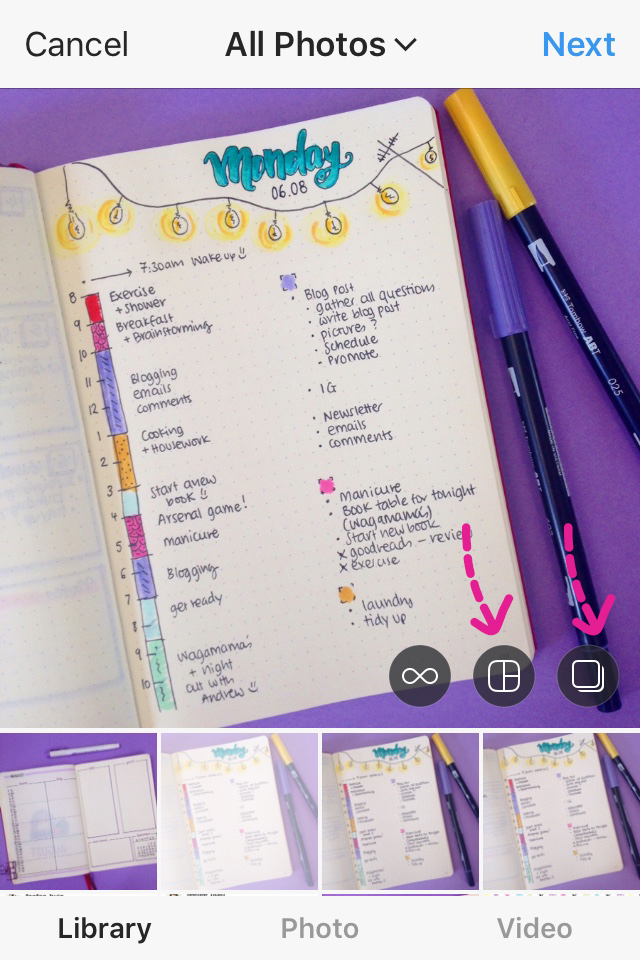 Cancel
All Photos
Next
Monday
06.08
7:30am Wake up
8
Exercise
+ shower
9
Breakfast
+ Brainstorming
10
11
Blogging
emails
12
comments
1
Cooking
+ Housework
2
3
Start a new
book
4
Arsenal game!
5
manicure
6
Blogging
7
get ready
8
9
Wagamama's
+ night
10
out with
Andrew
Blog Post
gather all questions
write blog post
pictures ?
schedule
Promote
IG
Newsletter
emails
comments
Manicure
Book table for tonight
(Wagamamas)
Start new book
x goodreads - review
x exercise
laundry
tidy up
Tombow ABT
025
Library
Photo
Video